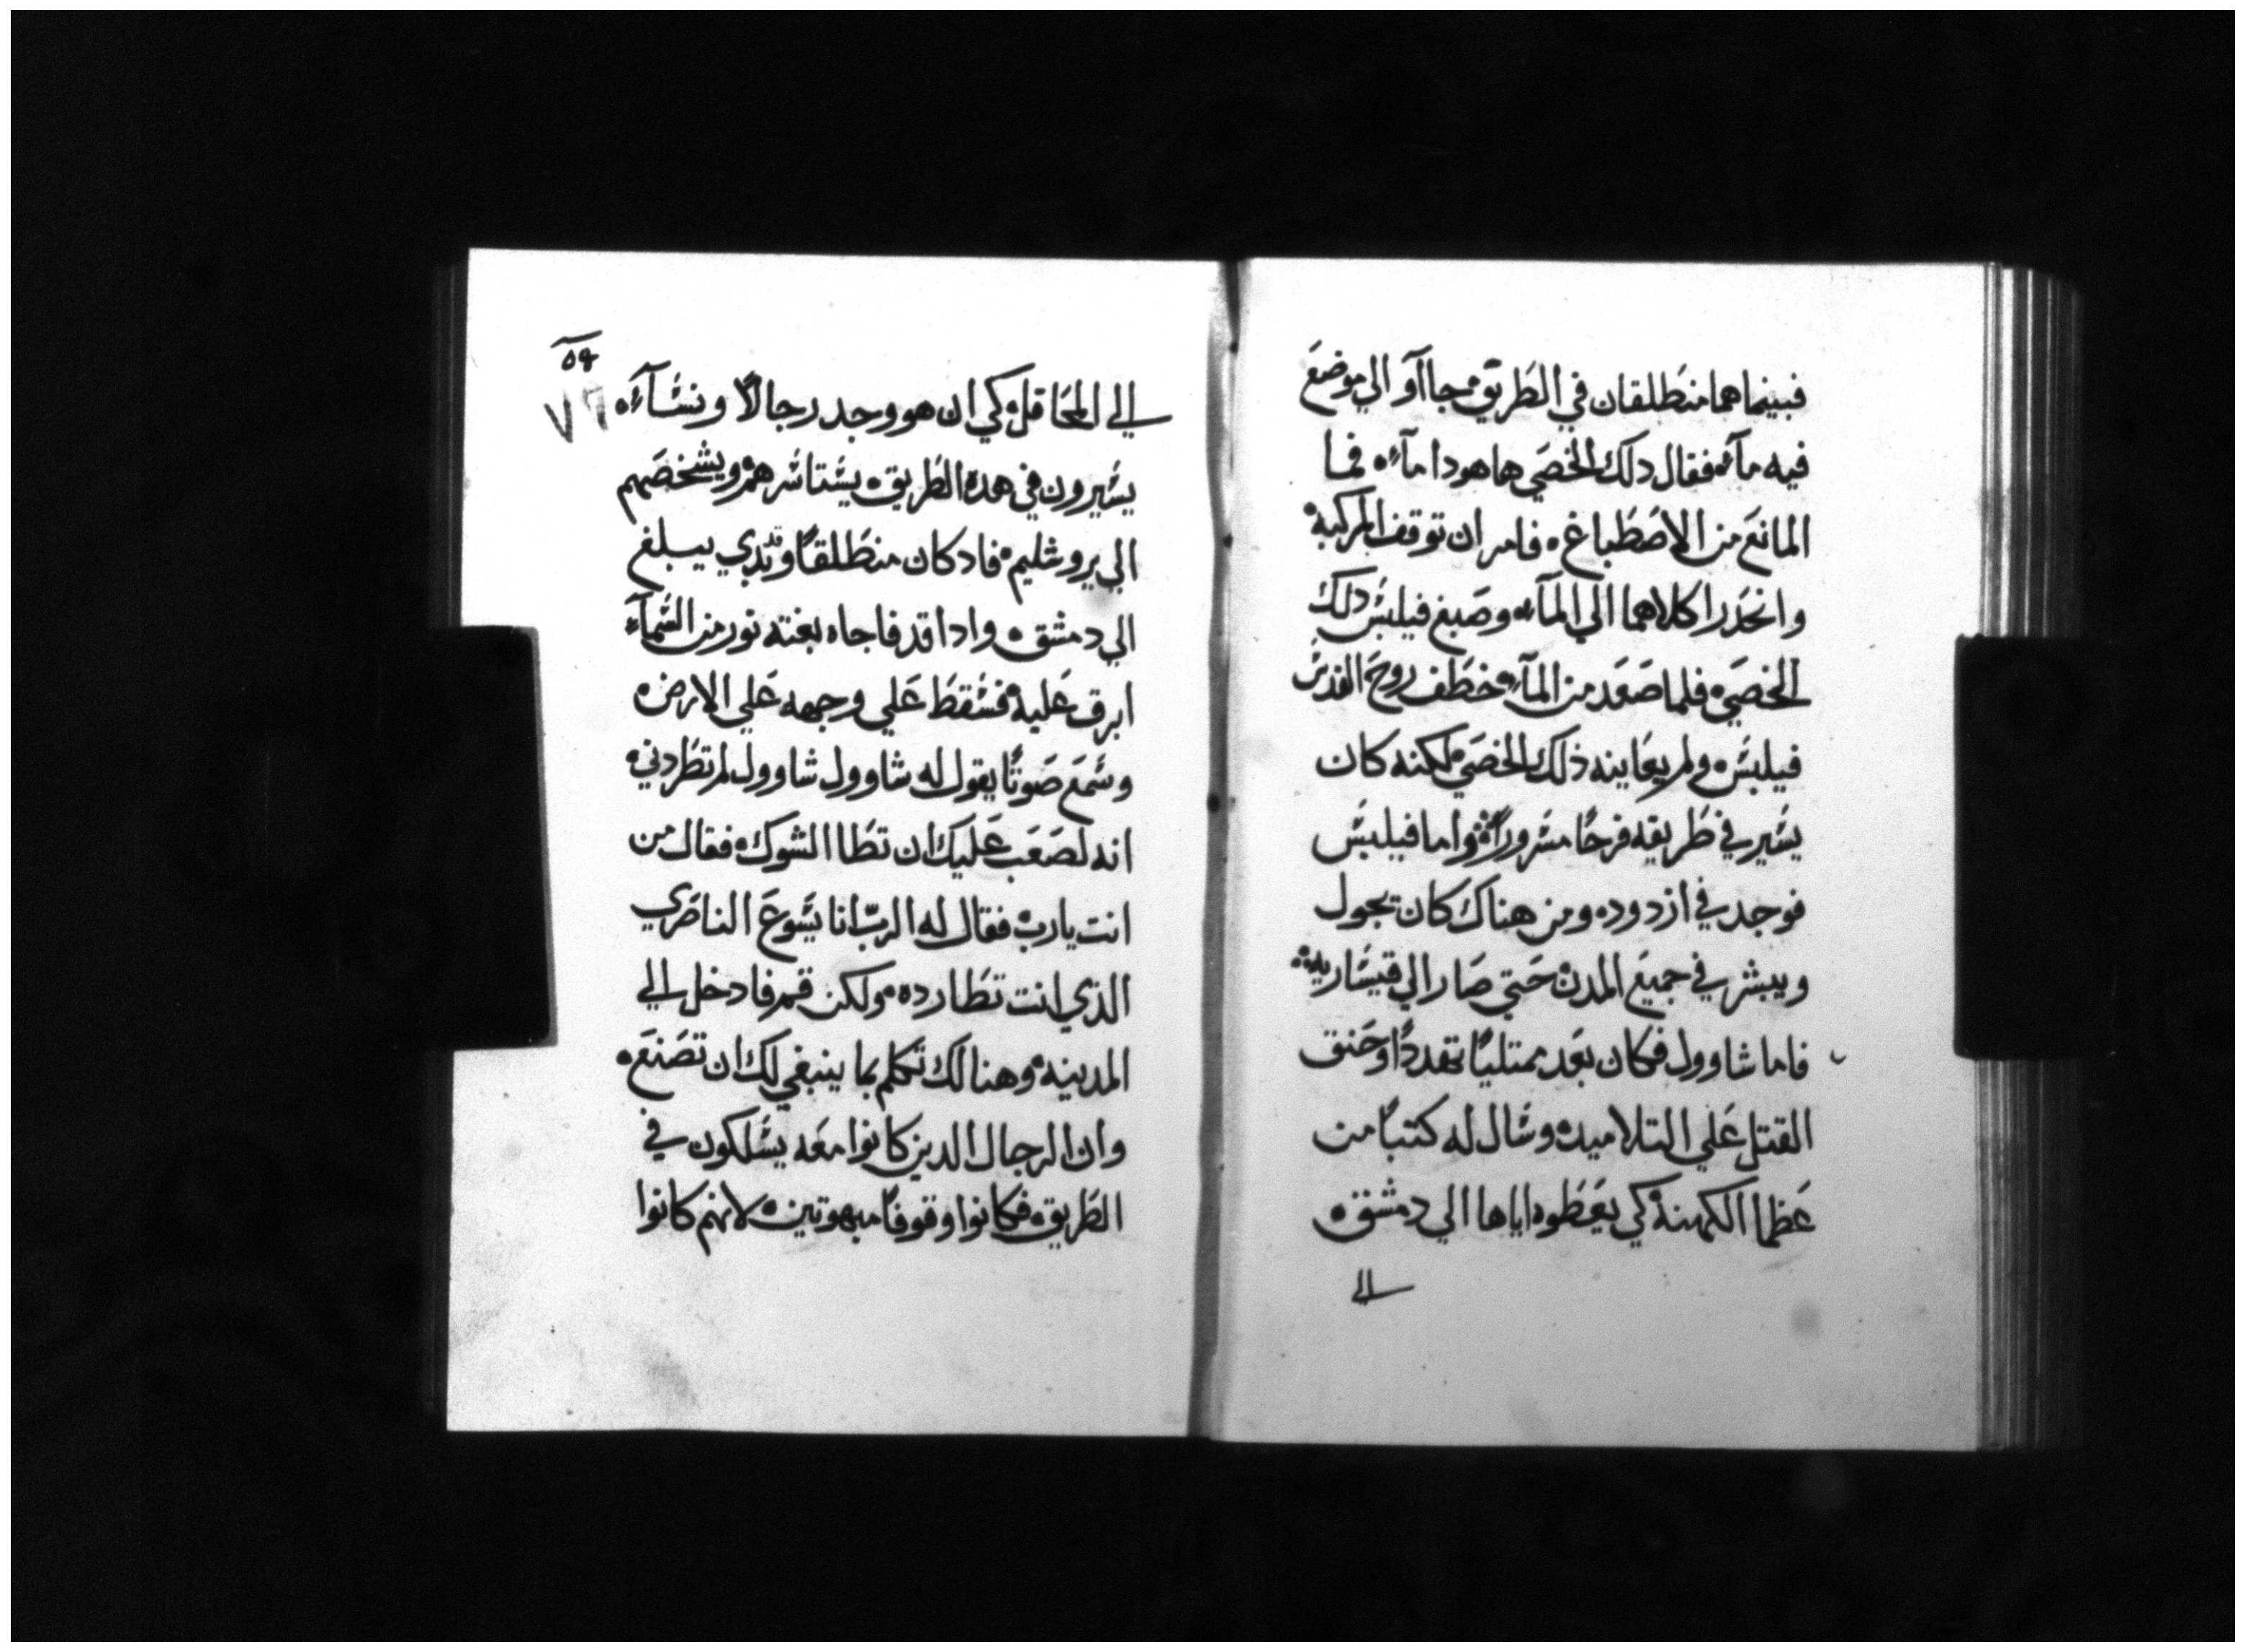 فبينما هما منطلقان في الطريق جااو الي موضع
فيه مآء فقال دلك الخصي ها هودا مآء فما
المانع من الاصطباغ فامر ان توقف المركبة
وانحدرا كلاهما الي المآء وصبغ فيلبس دلك
الخصي فلما صعد من المآء خطف روح القدس
فيلبس ولم يعاينه ذلك الخصي لكنه كان
يسير في طريقه فرحًا مسرورًا واما فيلبس
فوجد في ازدود ومن هناك كان يجول
ويبشر في جميع المدن حتي صار الي قيسارية
فاما شاوول فكان بعد ممتليًا تهددًا وحنق
القتل علي التلاميد وسال له كتبًا من
عظما الكهنة كي يعطوه اياها الي دمشق
الي
٥٩
٧٦
الي المحافل كي ان هو وجد رجالًا ونسآء
يسيرون في هده الطريق يستاسرهم ويشخصهم
الي يروشليم فاد كان منطلقًا وقد بدي يبلغ
الي دمشق وادا قد فاجاه بغته نور من السمآء
ابرق عليه فسقط علي وجهه علي الارض
وسمع صوتًا يقول له شاوول شاوول لم تطردني
انه لصعب عليك ان تطا الشوك فقال من
انت يا رب فقال له الربّ انا يسوع الناصري
الذي انت تطارده ولكن قم فادخل الي
المدينه وهنالك تكلم بما ينبغي لك ان تصنع
وان الرجال الدين كانوا معه يسلكون في
الطريق فكانوا وقوفًا مبهوتين لانهم كانوا